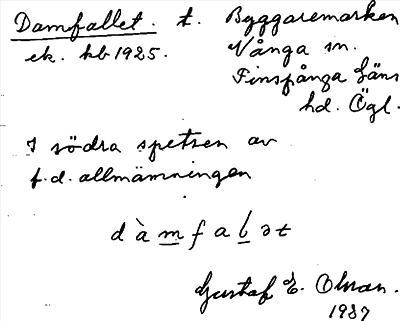 Damfallet. t. Byggaremarken
ek. hb 1925. Vånga sn.
Finspånga läns
hd. Ögl.
I södra spetsen av
f.d. allmämningen
dàmfalət
Gustaf E. Olsson.
1937